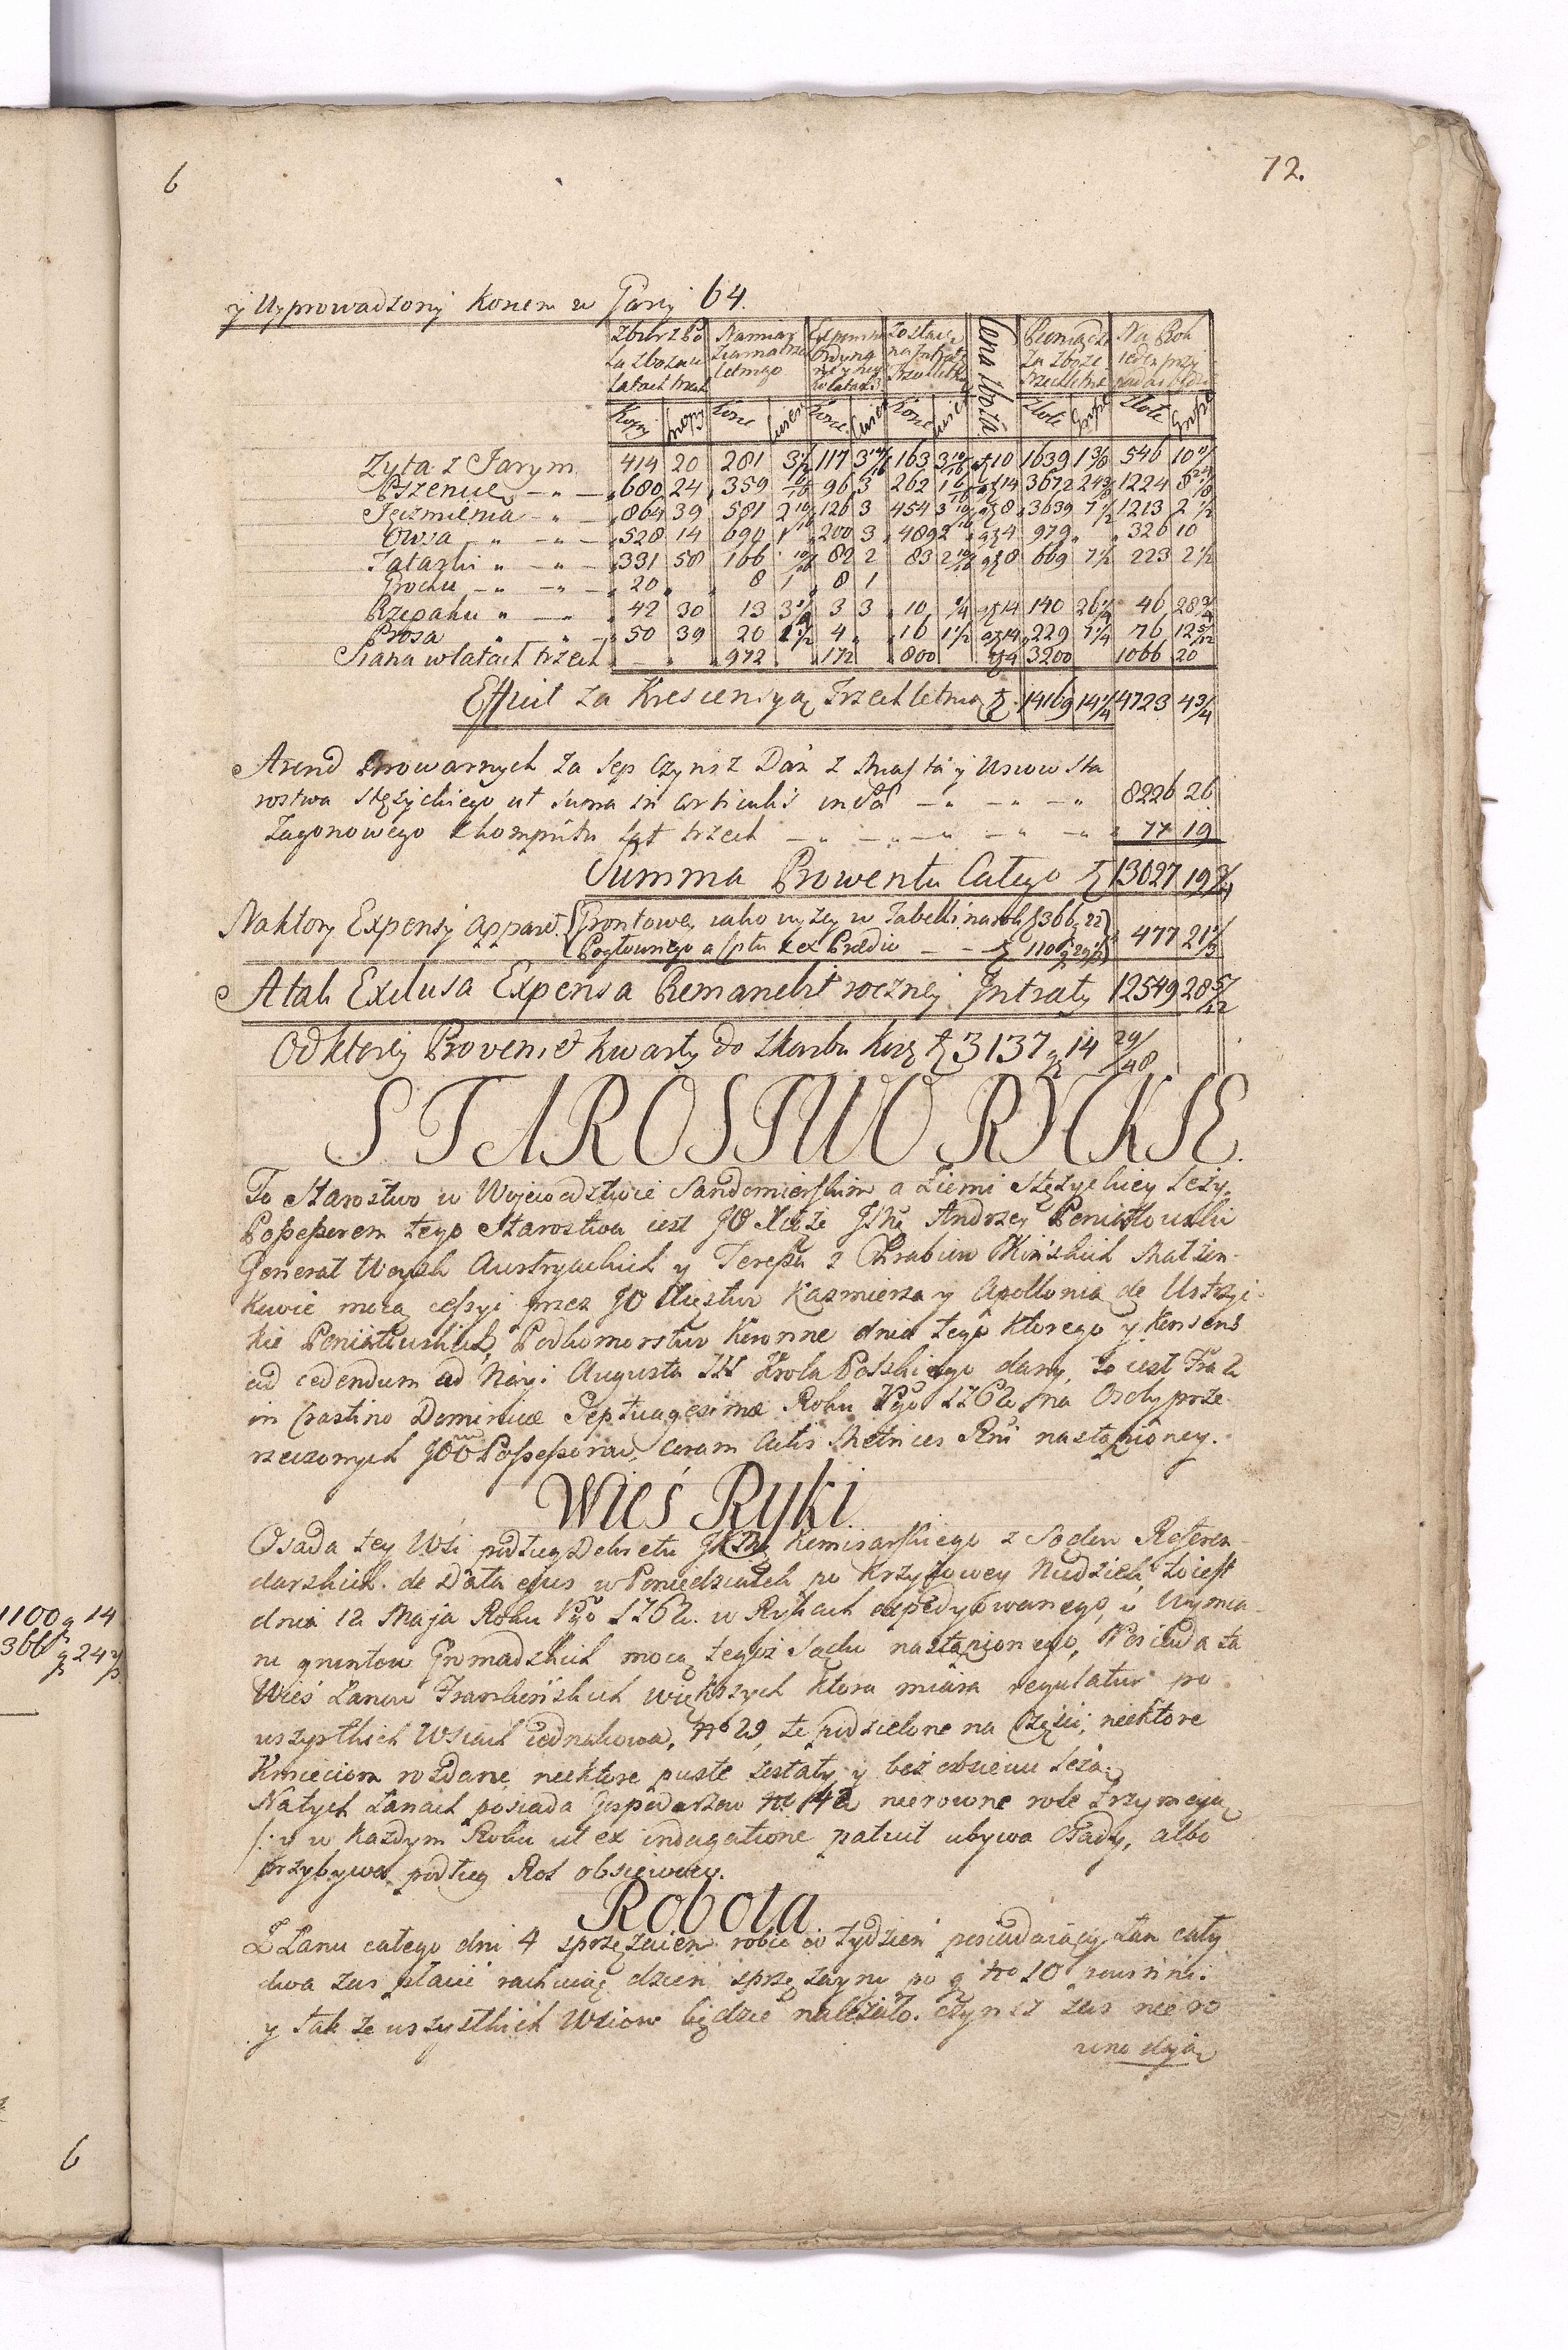 6
12.
y Wyprowadzony Koncem w Parę 64.
Zbior zbo Namiar Expensa Zostaie Cena zboża Pieniądze Na Rok
za zbozem Ziarna trze Ordyna na Intratę za zboże ieden przy
latach trzech letniego w latach 3 Trzechletnie
Kopy Snopy Korce Korce Korce Złote Grosze Złote Grosze
Zyta z Jarym 414 20 281 117 163 10 1639 546 10
Pszenicy 680 24 359 96 3 262 14 3672 1224
Jęczmienia 864 39 581 126 3 454 8 3639 7 1/2 1213 2 1/2
Owsa 528 14 690 1 200 3 489 2 4 979 326 10
Tatarki 331 58 166 82 2 83 8 669 7 1/2 223 2 1/2
Grochu 20 8 1 8 1
Rzepaku 42 30 13 3 3 10 14 140 46
Prosa 50 39 20 4 16 1 1/2 14 229 7 1/4 76
Siana w latach trzech 972 172 800 4 3200 1066 20
Efficit za Krescencyą Trzechletnią 14169 14 1/4 4723 4 3/4
Arend Browarnych za Sep Czynsz Dań z Miasta y Wsiow Sta
rostwa Stężyckiego ut suma in articulis 8226 26
Zagonowego z komputu lat trzech 77 19
Summa Prowentu Całego 13027 19 3/4
Naktory Expensy apparet Grontowey iako wyzey w Tabelli 366 22
Pogłownego ex Prædio 110 477 21 1/3
Atak Exclusa Expensa Remanebit roczney Intraty 12549 28 5/12
Od ktorey Proveniet Kwarty do Skarbu Kor 3137 g 14 29/48
STAROSTWO RYCKIE.
To Starostwo w Woiewodztwie Sandomierskim a Ziemi Stężyckiey leży,
Possessorem tego Starostwa iest JO Xiąże JMć Andrzey Poniatowski
Generał Woysk Austryackich y Teressa z Hrabiow Kińskich Małżon-
kowie mocą cessyi przez JO Xięstwo Kazmierza y Apollonią de Ustrzy-
kie Poniatowskich, Podkomorstwo Koronne dnia tego ktorego y Konsens
ad cedendum od Nayj: Augusta III Krola Polskiego dany, to iest Fra 2
in Crastino Dominicæ Septuagesimæ Roku 1762 na Osoby prze
rzeczonych JOO Possessorow, coram Actis Metrices Rni nastąpioney.
Wieś Ryki
Osada tey Wsi podług Dekretu JKMci Komisarskiego z Sądow Referen-
darskich. de Data ejus w Poniedziałek po Krzyżowey Niedzieli, to iest
dnia 12 Maja Roku 1762. w Rykach expedyowanego, i Wymia-
ru gruntow Gromadzkich mocą tegoż Sądu nastąpionego, Posiada ta
Wieś Łanow Frankońskich większych ktora miara regulatur po
wszystkich Wsiach iednakowa, No 29, te podzielone na części, niektore
Kmieciom rozdane, niektore puste zostały y bez obsiewu leżą.
Natych Łanach posiada Gospodarzow No 142 nierowne role trzymaią
/: i w każdym Roku ut ex indagatione patuit ubywa Osady, albo
przybywa podług Rol obsiewu.
Robota
Z Łanu całego dni 4 sprzężaien robić co tydzień posiadaiący Łan cały
dwa zas płacić rachuiąc dzień sprzężayny po g No 10
y tak ze wszystkich Wsiow będzie należało. Czynsz zas nie ro
wno daią
1100 g 14
366 g 24
6